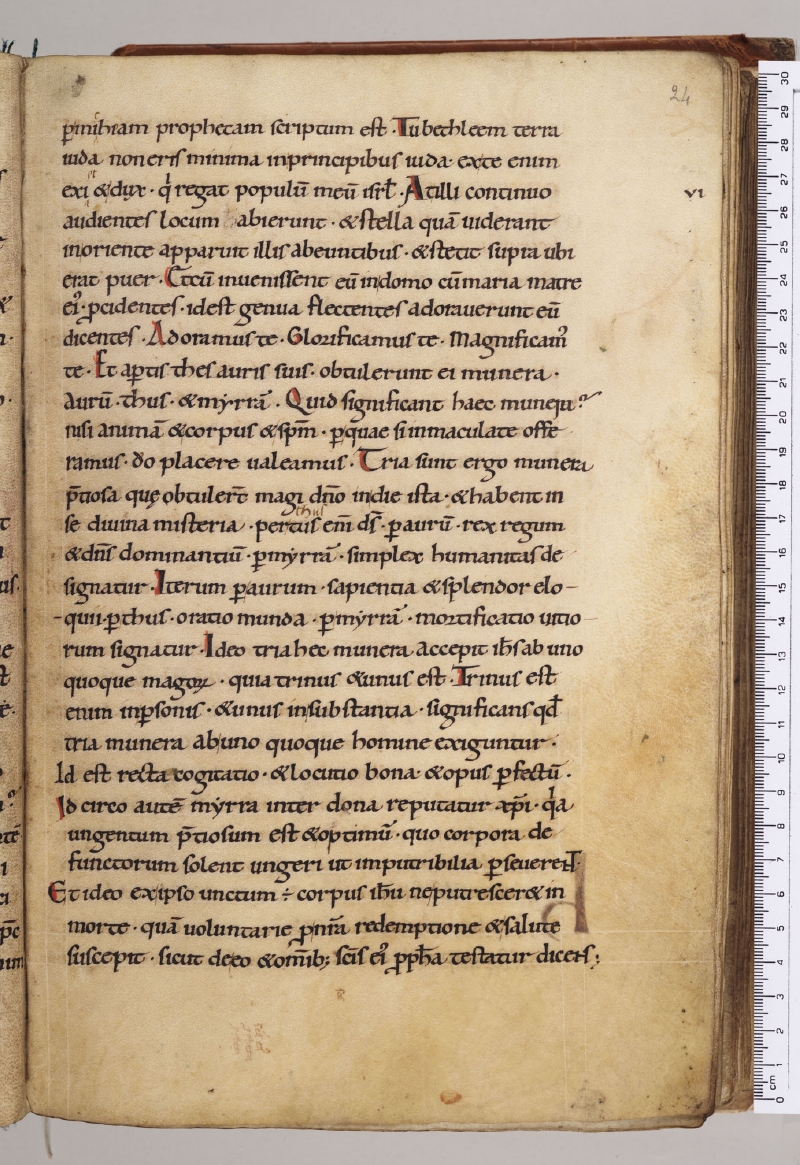 24
ꝑmihiam prophetam scriptum est · Tu bethleem terra
iuda non eris minima inprincipibus iuda · exte enim
exi & dux · qͥ regat populū meū isrł · At illi continuo
vi
audientes locum abierunt · & stella quā uiderant
inoriente apparuit illis abeuntibus · & stetit supra ubi
erat puer · Et cū inuenissent eū indomo cū maria matre
ei᾽ · pcidentes · idest genua flectentes adorauerunt eū
dicentes · Adoramus te · Glorificamus te · Magnificam᾽
te · Et aptis thesauris suis · obtulerunt ei munera ·
Aurū · thus · & myrrā · Quid significant haec munera ?
nisi animā & corpus & spm̄ · ꝑ quae si inmaculate offe
ramus · do placere ualeamus · Tria sunt ergo munera
p̄tiosa quę obtuler̄t magi dn̄o indie ista · & habent in
se diuina misteria · per thus em̄ ds̄ · ꝑ aurū · rex regum
& dn̄s dominantiū · ꝑ myrrā · simplex humanitas de
signatur · Iterum ꝑ aurum · sapientia & splendor elo-
-quii · ꝑ thus · oratio munda · ꝑ myrrā · mortificatio uitio
rum signatur · Ideo tria hec munera accepit ih̄s ab uno
quoque magoꝝ · quia trinus & unus est · Trinus est
enim inꝑsonis · & unus insubstantia · significans qd̄
tria munera ab uno quoque homine exiguntur ·
Id est recta cogitatio · & locutio bona · & opus ꝑfectū ·
Id circo autē myrra inter dona reputatur xp̄i · qͥa
ungentum p̄tiosum est & optimū · quo corpora de
functorum solent ungeri ut imputribilia ꝑseuerent
Et ideo ex ipso unctum ÷ corpus ih̄u ne putrescer& in
morte · quā uoluntarie ꝑ nr̄a redemptione & salute
suscepit · sicut deeo & omīb; sc̄is ei᾽ ꝓph̄a testatur dicens ;